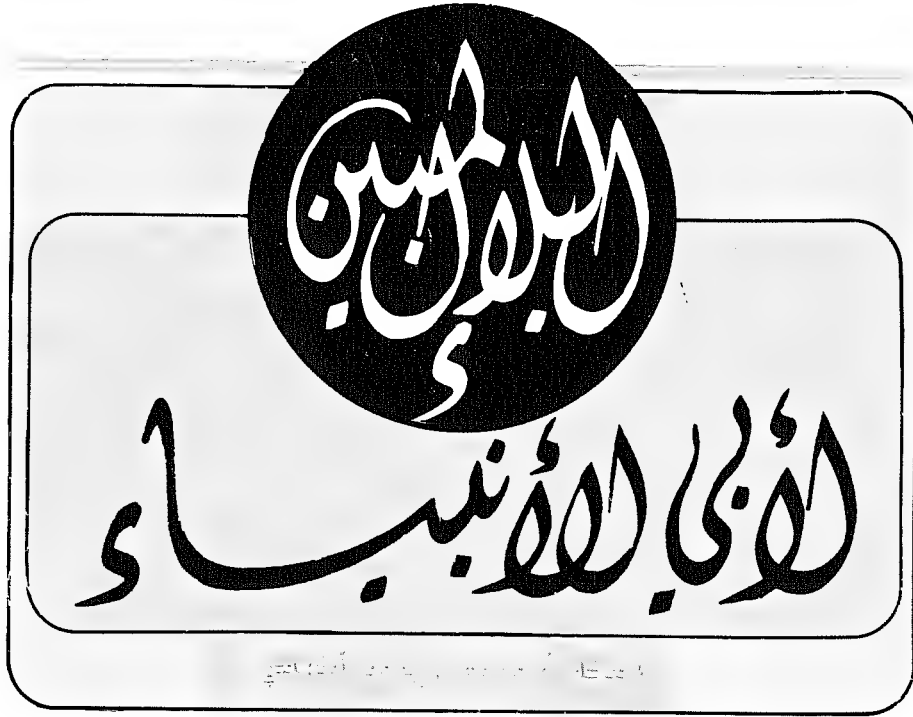 البلاء المبين
لأبي الأنبياء